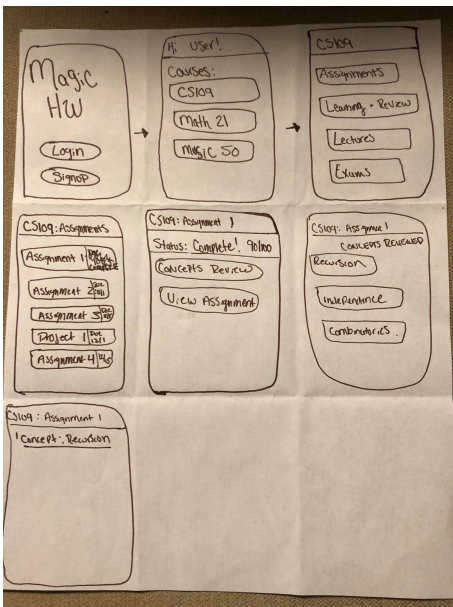 Magic
HW
Login
Signup
Hi User!
Courses:
CS109
Math 21
Music 50
CS109
Assignments
Learning + Review
Lectures
Exams
CS109: Assignments
Assignment 1 Due
COMPLETE
Assignment 2 Due
Assignment 3 Due
Project 1 Due
12/1
Assignment 4
CS109: Assignment 1
Status: Complete! 90/100
Concepts Review
View Assignment
CS109: Assignment 1
CONCEPTS REVIEWED
Recursion
Independence
Combinatorics.
CS109: Assignment 1
Concept: Recursion